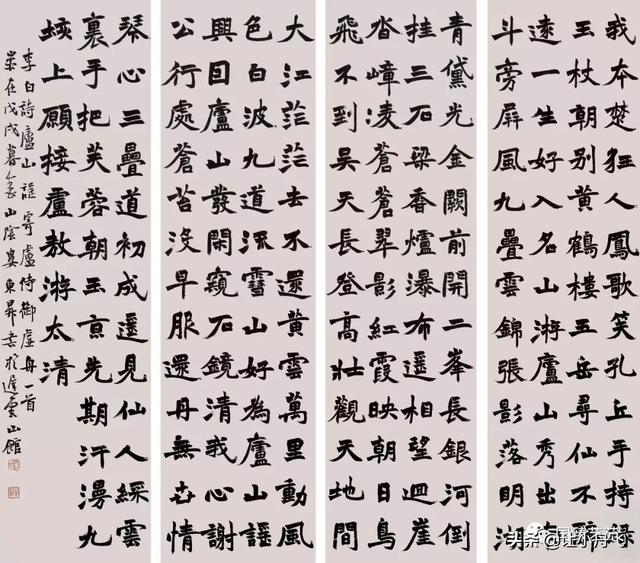 我本楚狂人鳳歌笑孔丘手持綠
玉杖朝别黄鶴樓五岳尋仙不辭
遠一生好入名山游廬山秀出南
斗旁屏風九疊雲錦張影落明湖
青黛光金闕前開二峯長銀河倒
挂三石梁香爐瀑布遥相望迴崖
沓嶂凌蒼蒼翠影紅霞映朝日鳥
飛不到吴天長登高壯觀天地間
大江茫茫去不還黄雲萬里動風
色白波九道流雪山好為廬山謡
興因廬山發閑窺石鏡清我心謝
公行處蒼苔没早服還丹無世情
琴心三疊道初成遥見仙人綵雲
裏手把芙蓉朝玉京先期汗漫九
垓上願接盧敖游太清
李白詩廬山謡寄盧侍御虚舟一首
歲在戊戌暮冬山陰婁東昇書於雲山館
头条